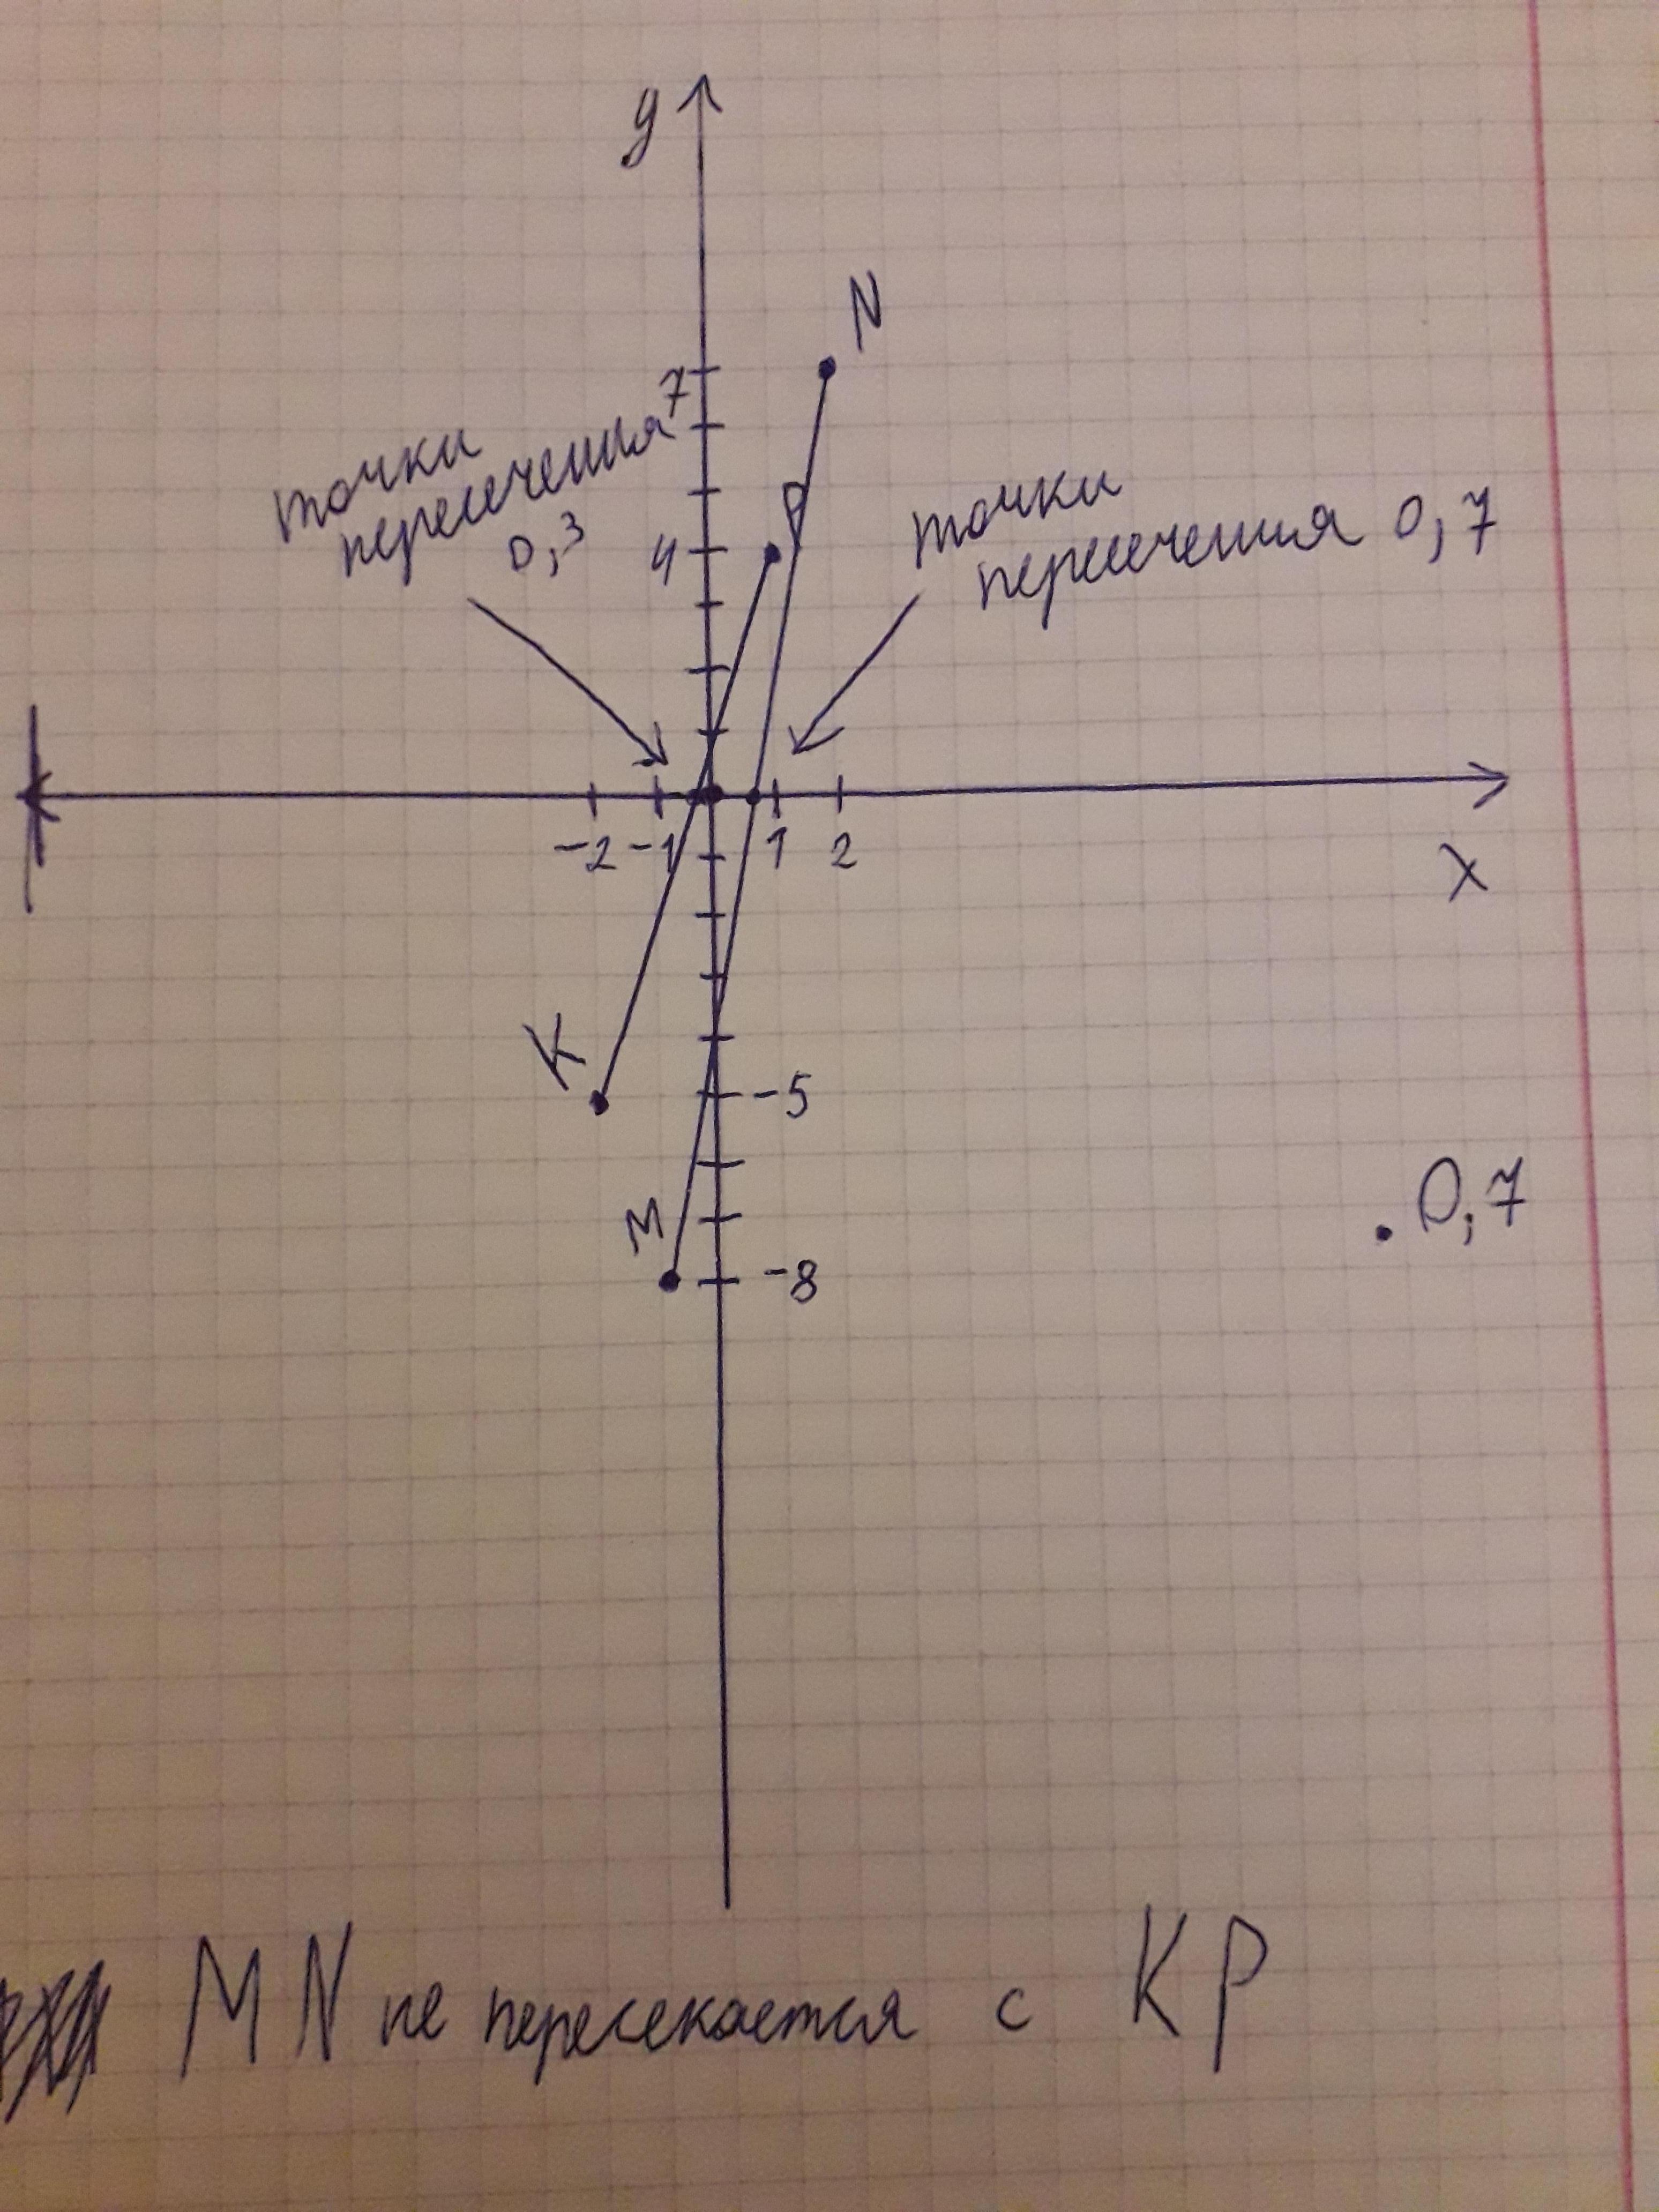 y
N
7
точки
пересечения
0,3
P
точки
пересечения 0,7
4
-2 -1 1 2
x
K
-5
M
-8
0,7
MN не пересекается с KP